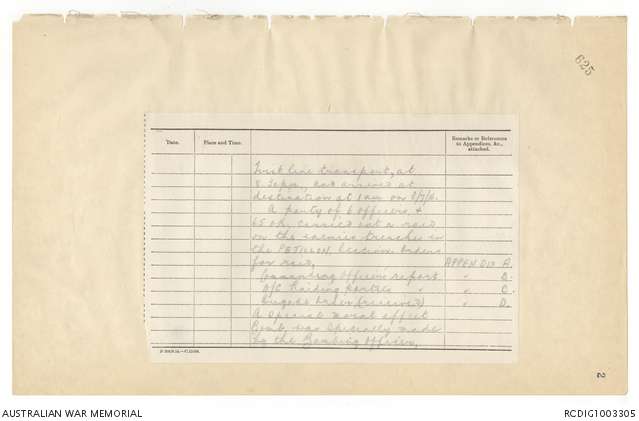 625
Date.
Place and Time.
Remarks or References
to Appendices, &c.,
attached.
First line transport, at
8.30pm, had arrived at
destination at 1 am on
A party of 6 officers &
65 o.r. carried out a raid
on the enemies trenches in
the PETILLON Section. Orders
for raid, APPENDIX A.
Commanding Officers report " B.
O/C Raiding parties " C.
Brigade Order (received) " D.
A special moral effect
bomb, was specially made
by the Bombing Officer.
2
AUSTRALIAN WAR MEMORIAL
RCDIG1003305